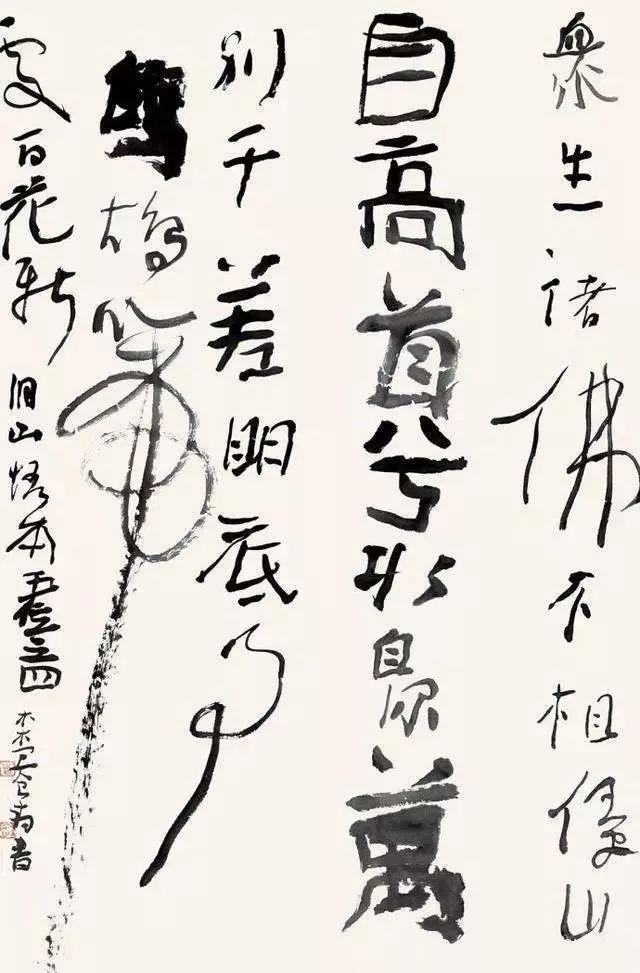 眾生諸佛不相侵山
自高首兮水自深萬
別千差明底事
鷓鴣啼
處百花新
旧山悟本五位之四